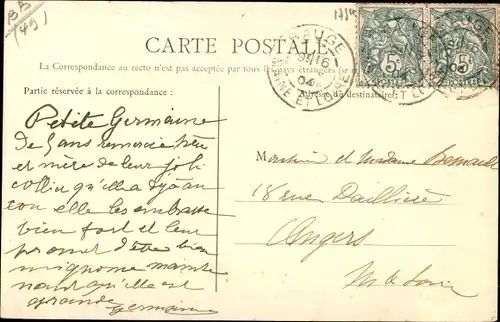 CARTE POSTALE
La Correspondance au recto n'est pas acceptée par tous les pays étrangers (se
Partie réservée à la correspondance :
Adresse du destinataire.
MAINE ET LOIRE
04
5
5
Petite Germaine
de 5 ans remercie
et mère de leur joli
collier qu'elle a
elle les embrasse
bien fort et leur
promet d'être bien
mignonne mainte
nant qu'elle est
grande
Germaine
Monsieur et Madame
18 rue Daillière
Angers
M et Loire